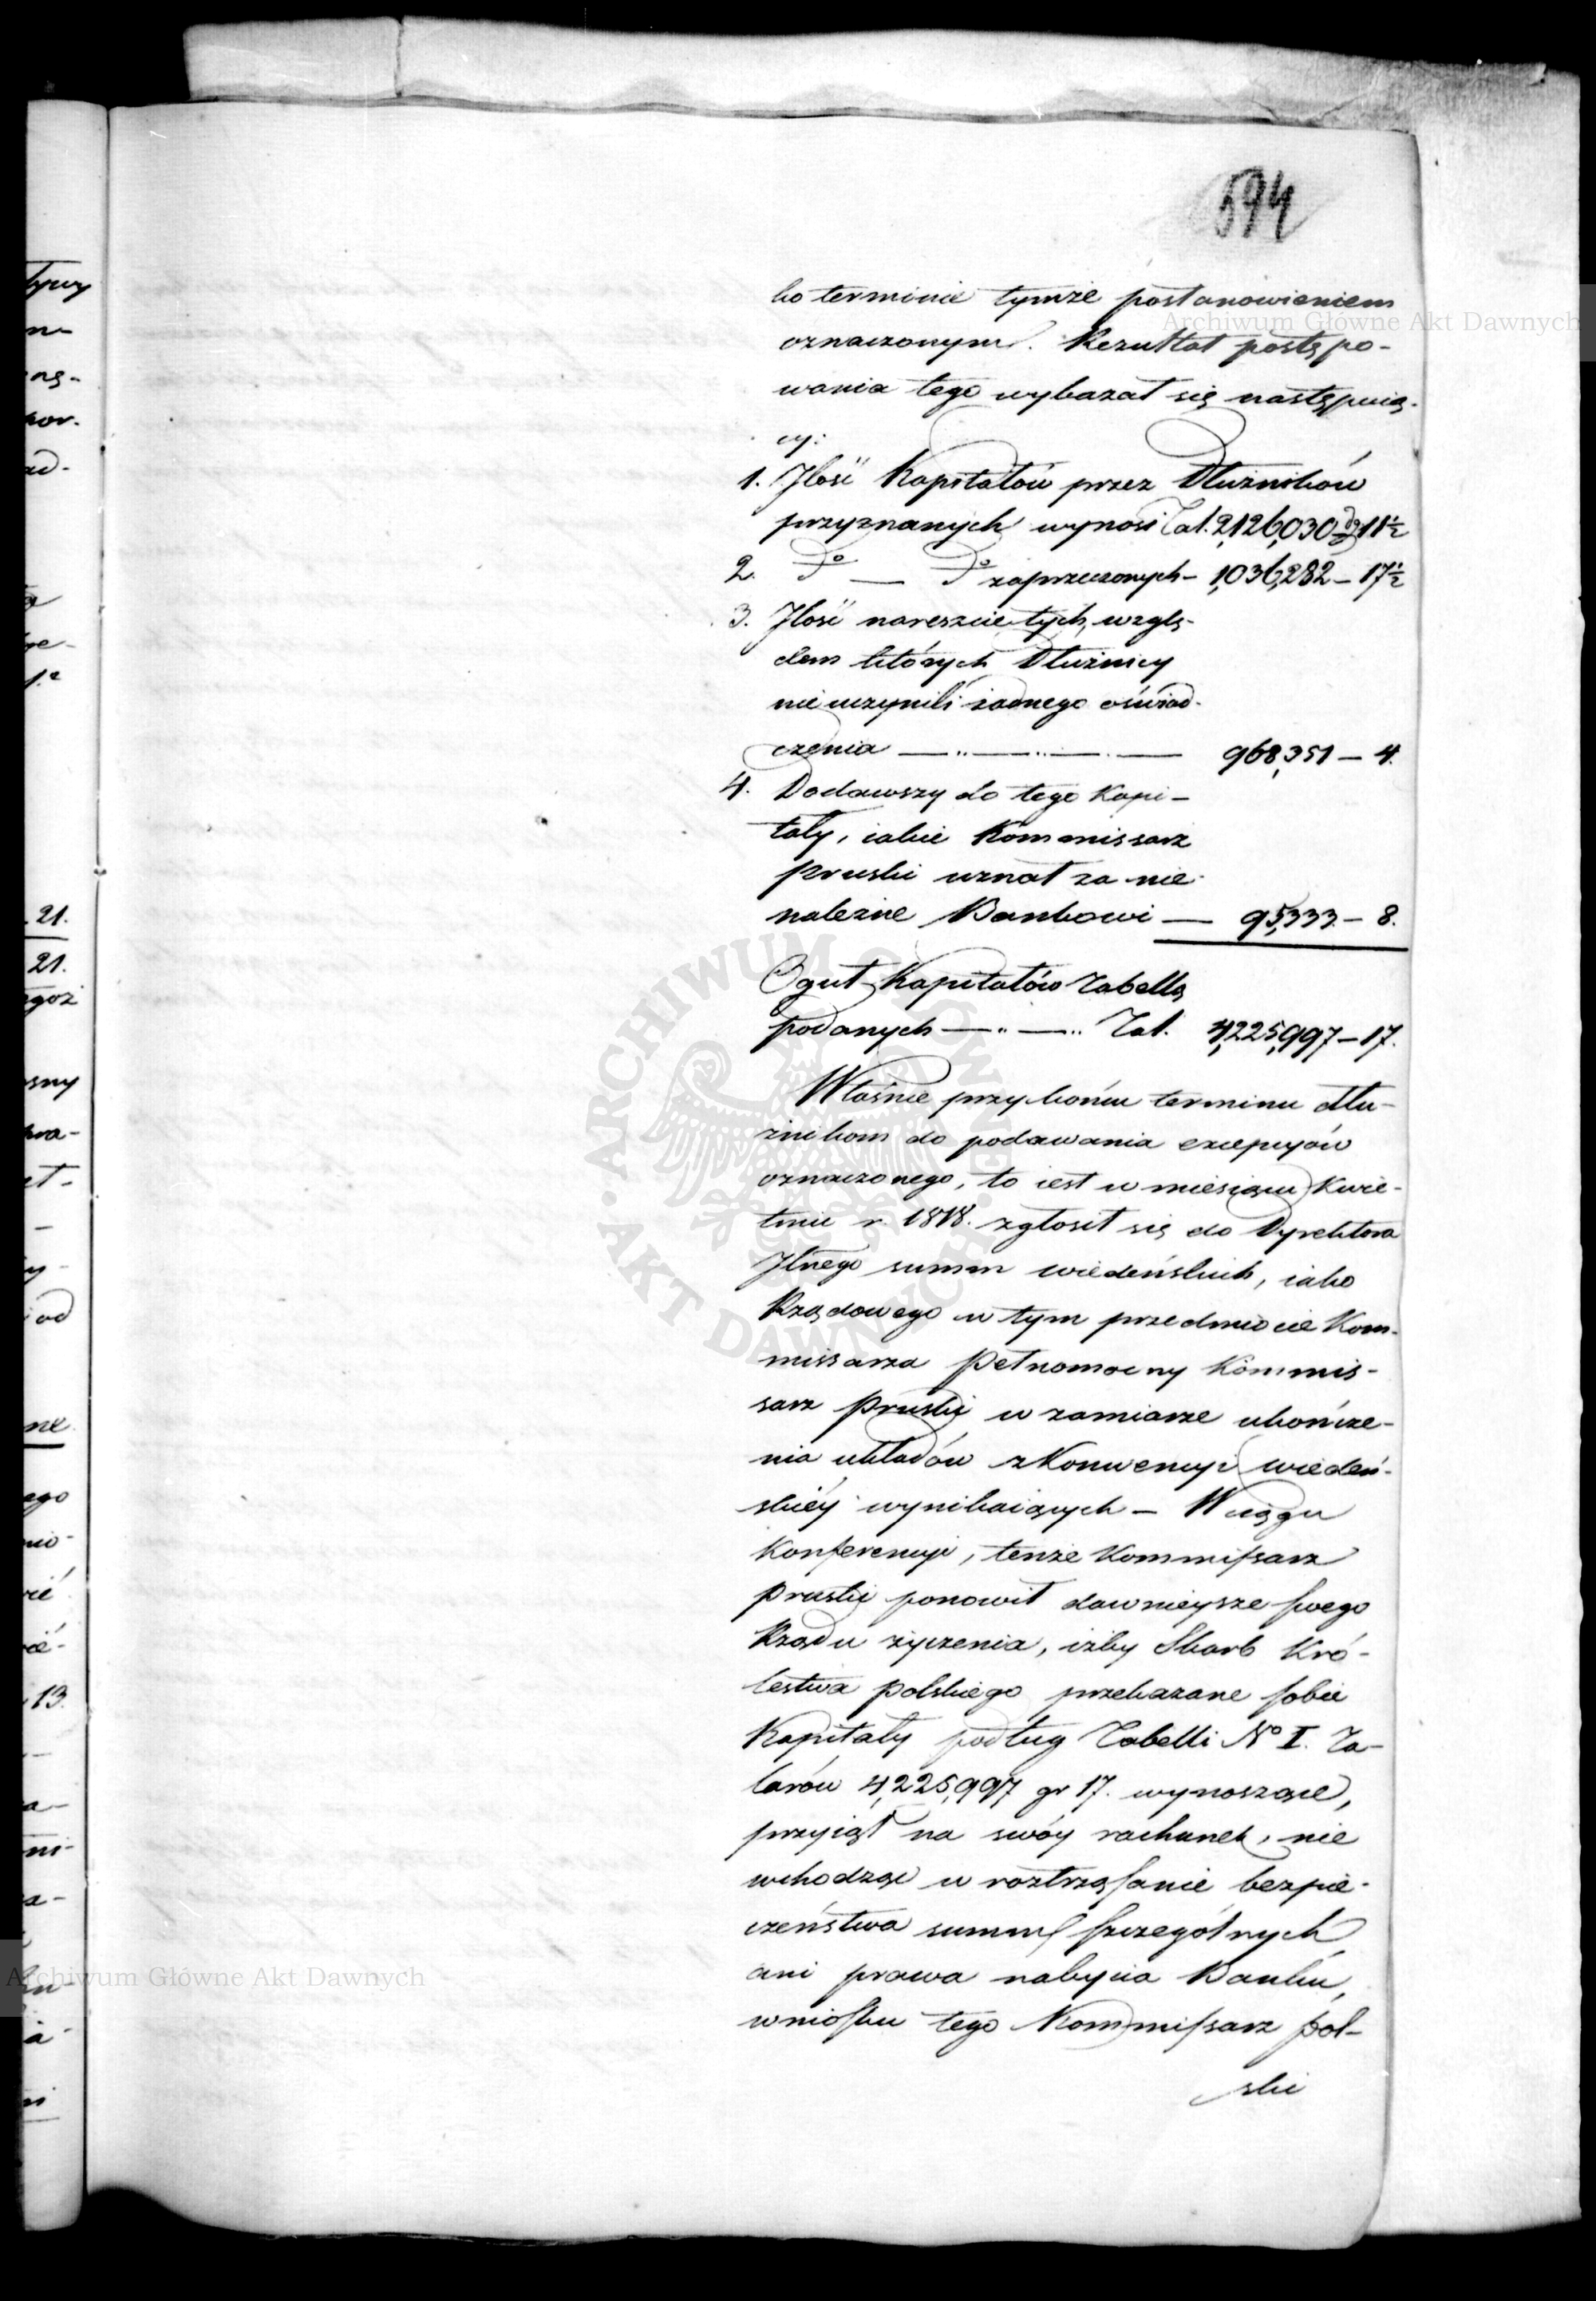 594
ko terminie tymże postanowieniem
oznaczonym. Rezultat postępo-
wania tego wykazał się następuią-
cy:
1. Jlość Kapitałów przez Dłużników
przyznanych wynosi Tal. 2,126,030 dg 11½
2. do — do zaprzeczonych – 1,036,282 – 17½
3. Jlość nareszcie tych, wzglę-
dem których Dłużnicy
nieuczynili żadnego oświad-
czenia — 968,351 – 4.
4. Dodawszy do tego Kapi-
tały, iakie Kommissarz
Pruski uznał za nie
należne Bankowi — 95,333 – 8.
Oguł Kapitałów Tabellą
podanych — Tal. 4,225,997 – 17.
Właśnie przy końcu terminu dłu-
żnikom do podawania excepcyów
oznaczonego, to iest w miesiącu Kwie-
tniu r. 1818. zgłosił się do Dyrektora
Jlnego summ wiedeńskich, iako
Rządowego w tym przedmiocie Kom-
missarza Pełnomocny Kommis-
sarz Pruski w zamiarze ukończe-
nia układów z Konwencyi wiedeń-
skiéy wynikaiących – W ciągu
Konferencyi, tenże Kommissarz
Pruski ponowił dawnieysze swego
Rządu życzenia, iżby Skarb Kró-
lestwa Polskiego przekazane sobie
Kapitały podług Tabelli No I. Ta-
larów 4,225,997 gr 17. wynoszące,
przyiął na swóy rachunek, nie
wchodząc w roztrząsanie bezpie-
czeństwa summ szczególnych
ani prawa nabycia Banku,
wniosku tego Kommissarz Pol-
ski
Archiwum Główne Akt Dawnych
Archiwum Główne Akt Dawnych
ARCHIWUM GŁÓWNE AKT DAWNYCH